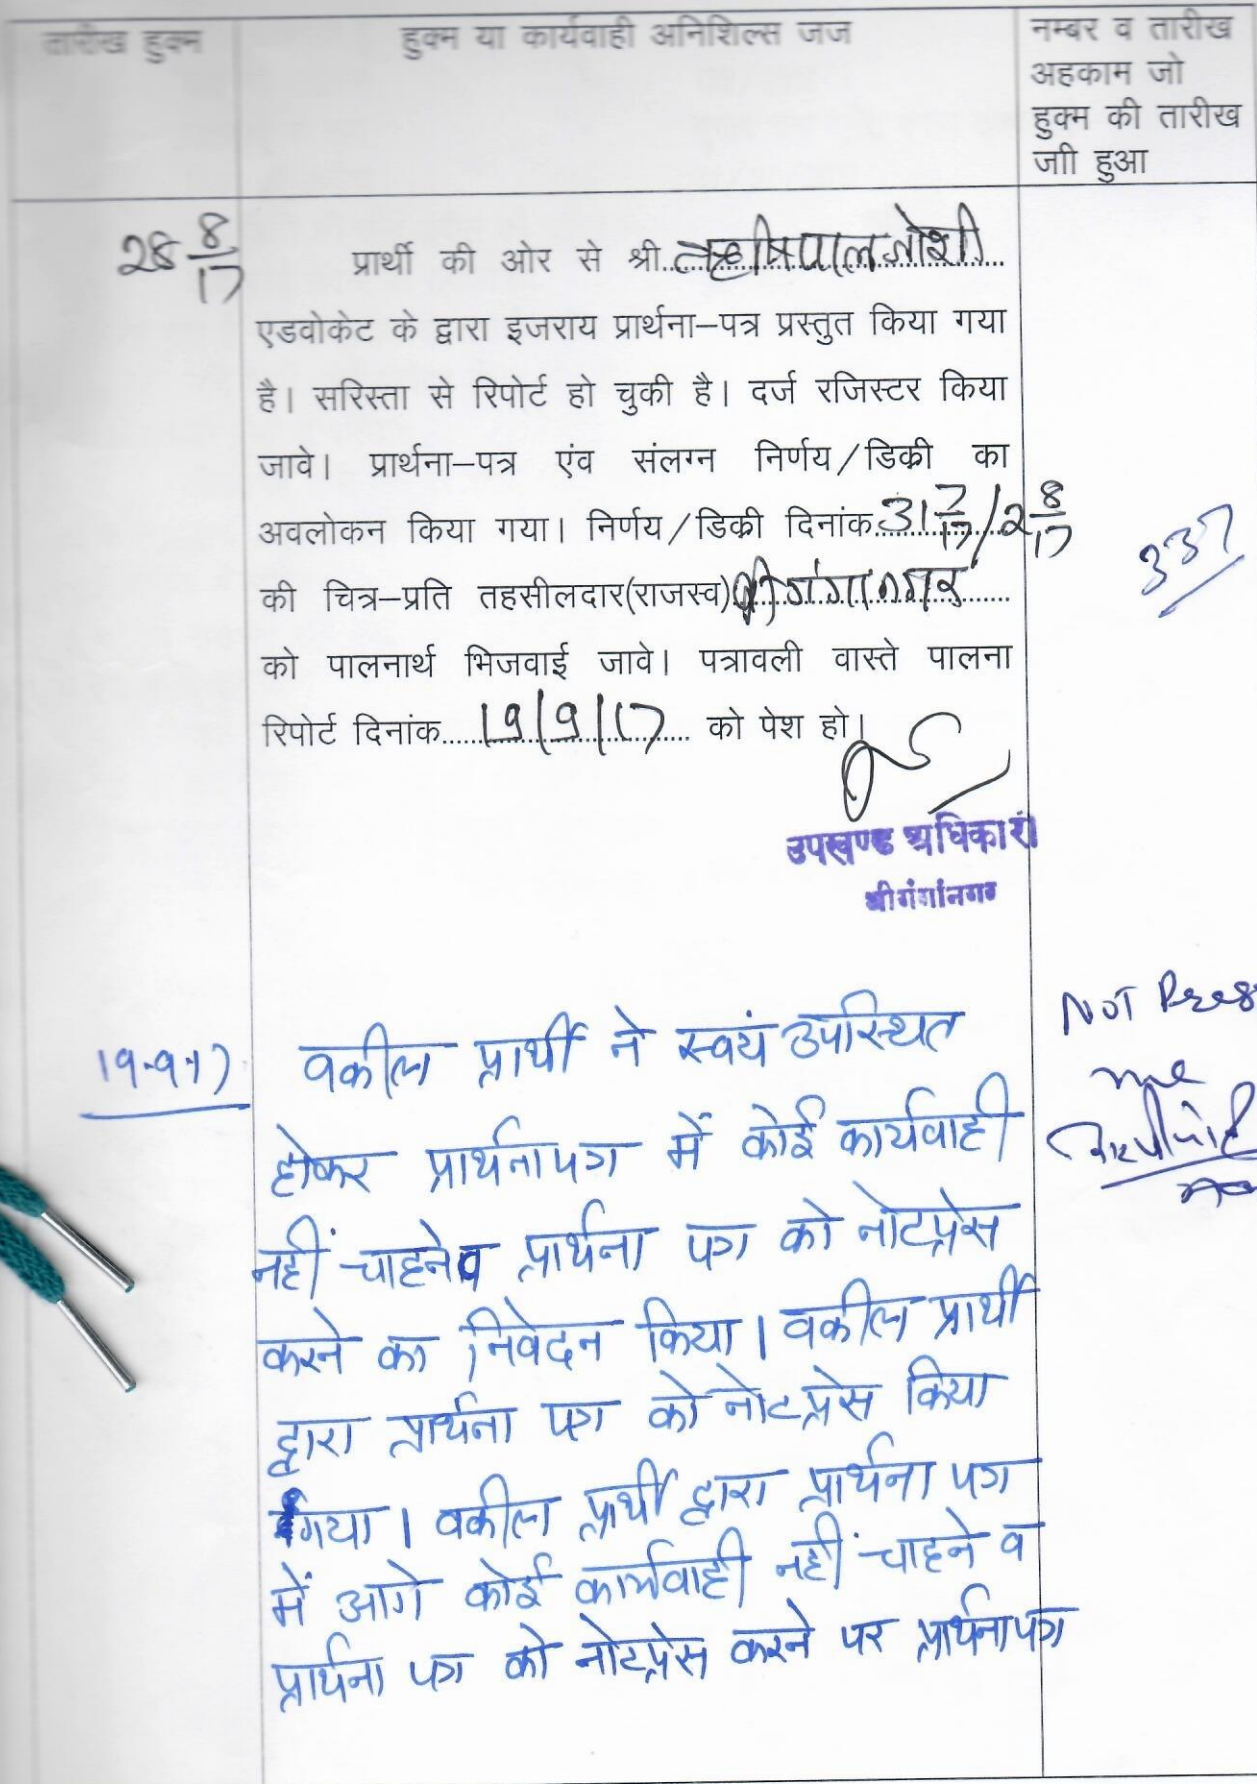 तारीख हुक्म
हुक्म या कार्यवाही अनिशिल्स जज
नम्बर व तारीख
अहकाम जो
हुक्म की तारीख
जाी हुआ
28 8/17
प्रार्थी की ओर से श्री..ऋषिपाल जोशी..
एडवोकेट के द्वारा इजराय प्रार्थना–पत्र प्रस्तुत किया गया
है। सरिस्ता से रिपोर्ट हो चुकी है। दर्ज रजिस्टर किया
जावे। प्रार्थना–पत्र एंव संलग्न निर्णय/डिक्री का
अवलोकन किया गया। निर्णय/डिक्री दिनांक..31 7/17/2 8/17
337
की चित्र–प्रति तहसीलदार(राजस्व) श्रीगंगानगर
को पालनार्थ भिजवाई जावे। पत्रावली वास्ते पालना
रिपोर्ट दिनांक....19/9/17.... को पेश हो।
उपखण्ड अधिकारी
श्रीगंगानगर
NOT Press
me
19-9-17
वकील प्रार्थी ने स्वयं उपस्थित
होकर प्रार्थनापत्र में कोई कार्यवाही
नहीं चाहने व प्रार्थना पत्र को नोटप्रेस
करने का निवेदन किया। वकील प्रार्थी
द्वारा प्रार्थना पत्र को नोटप्रेस किया
गया। वकील प्रार्थी द्वारा प्रार्थना पत्र
में आगे कोई कार्यवाही नहीं चाहने व
प्रार्थना पत्र को नोटप्रेस करने पर प्रार्थनापत्र